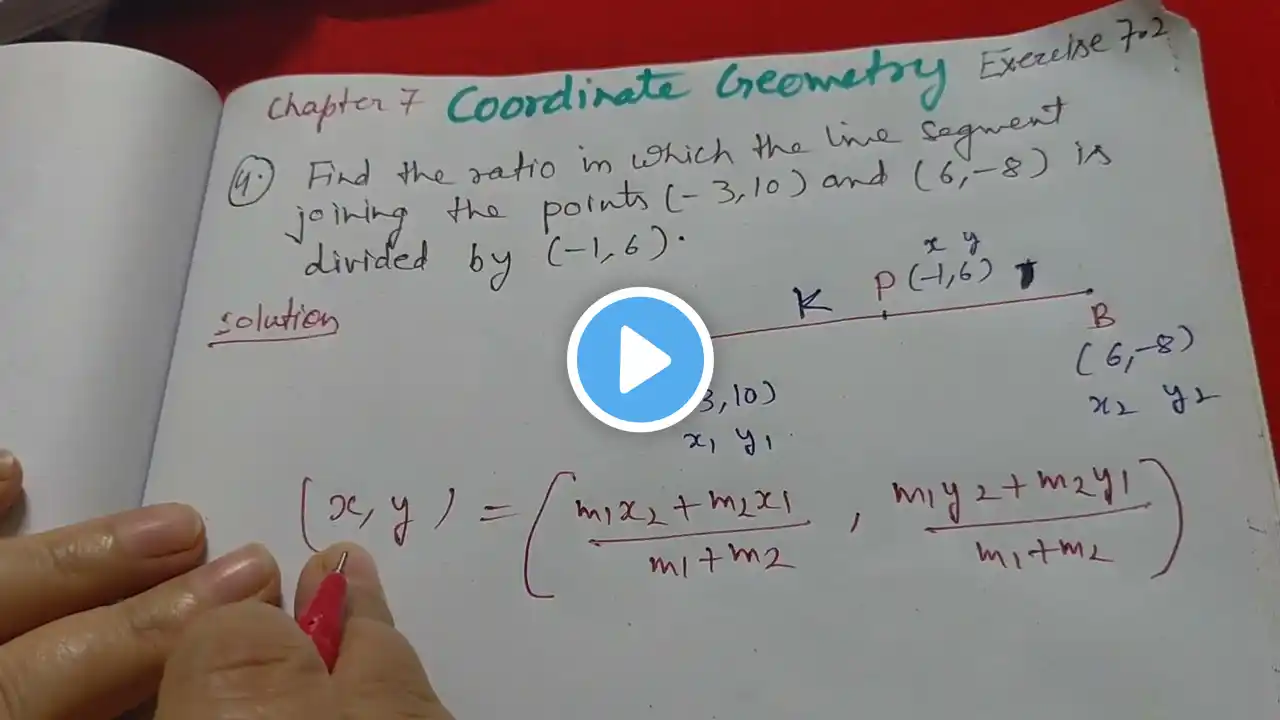 Chapter 7 Coordinate Geometry Exercise 7.2
4. Find the ratio in which the line segment
joining the points (-3,10) and (6,-8) is
divided by (-1,6).
solution
x y
K P (-1,6) 1
B
(6,-8)
x2 y2
3,10)
x1 y1
(x, y) = (m1x2+m2x1 / m1+m2 , m1y2+m2y1 / m1+m2)